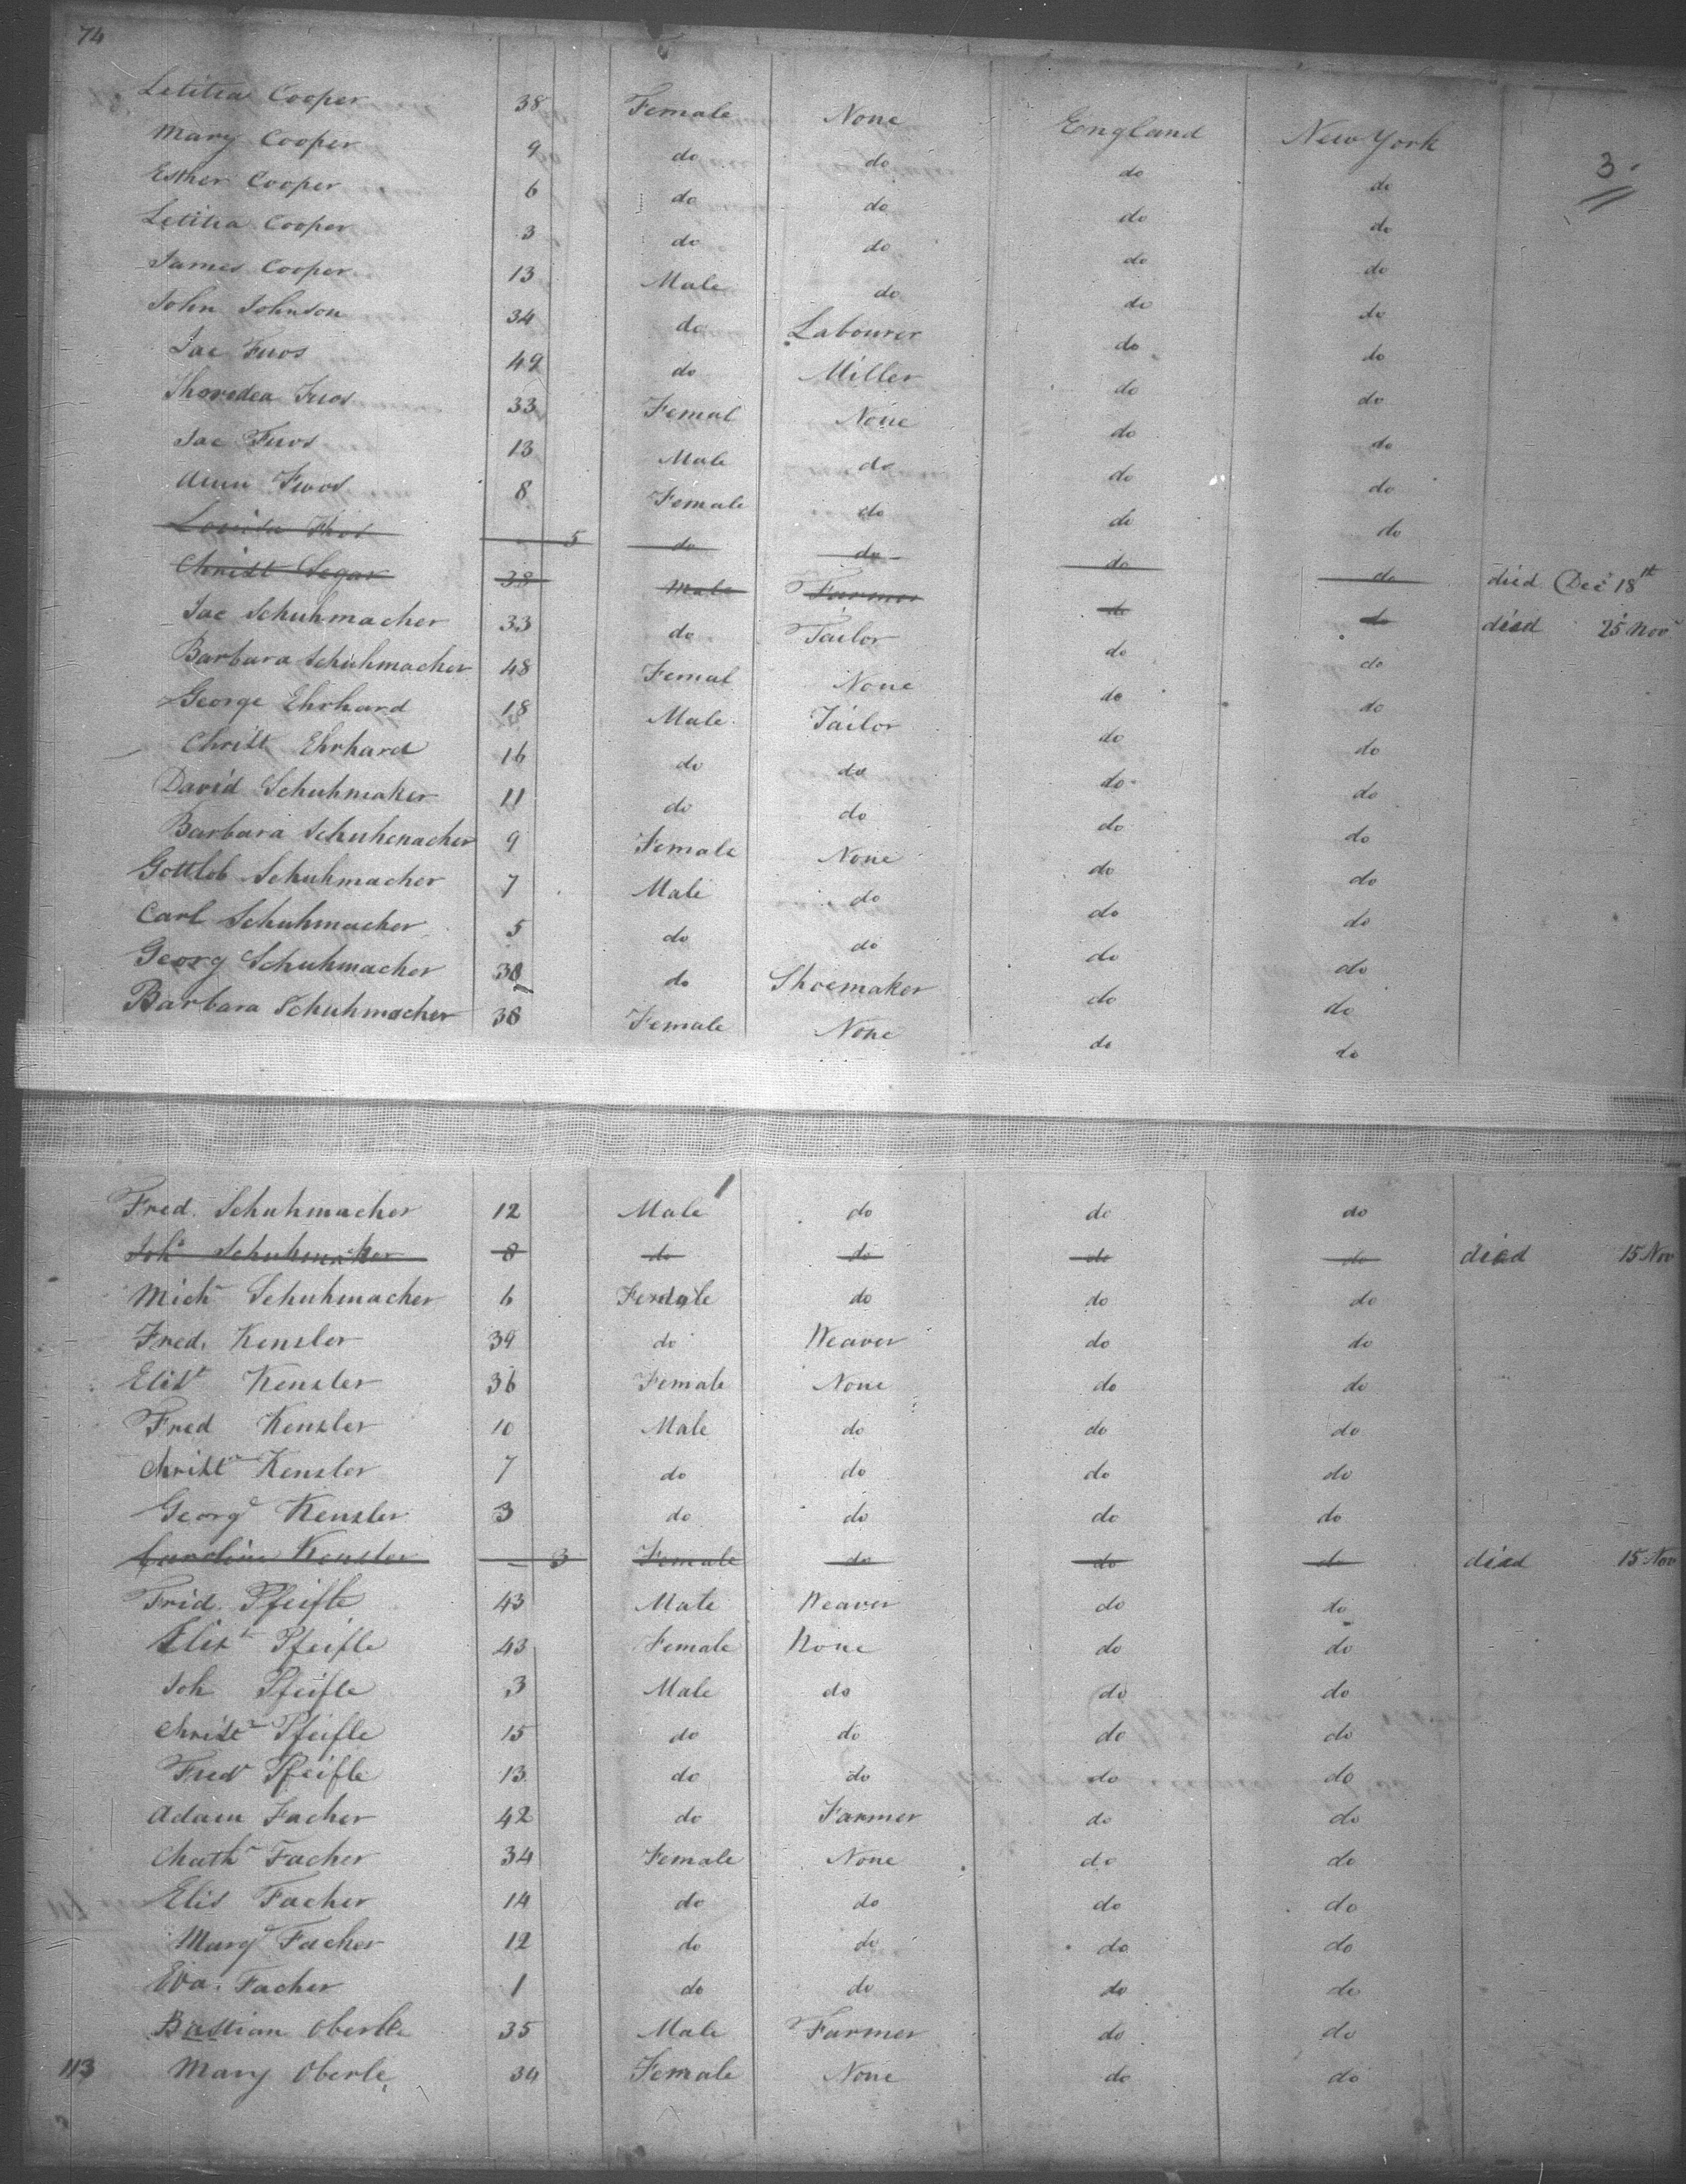 74
Letitia Cooper 38 Female None England New York
Mary Cooper 9 do do do do
3.
Esther Cooper 6 do do do do
Letitia Cooper 3 do do do do
James Cooper 13 Male do do do
John Johnson 34 do Labourer do do
Jac Fuos 49 do Miller do do
Fuos 33 Femal None do do
Jac Fuos 13 Male do do do
Ann Fuos 8 Female do do do
5 do do do do died Dec 18th
Christ Segar 38 Male Farmer do do died 25 Nov
Jac Schuhmacher 33 do Tailor do do
Barbara Schuhmacher 48 Femal None do do
George Ehrhard 18 Male Tailor do do
Christ Ehrhard 16 do do do do
David Schuhmaker 11 do do do do
Barbara Schuhmacher 9 Female None do do
Gottlob Schuhmacher 7 Male do do do
Carl Schuhmacher 5 do do do do
Georg Schuhmacher 38 do Shoemaker do do
Barbara Schuhmacher 38 Female None do do
Fred. Schuhmacher 12 Male do do do
Joh Schuhmaker 8 do do do do died 15 Nov
Mich Schuhmacher 6 do do do
Fred. Kensler 39 do Weaver do do
Elisth Kensler 36 Female None do do
Fred Kensler 10 Male do do do
Christ Kensler 7 do do do do
Georg Kensler 3 do do do do
Caroline Kensler 3 Female do do do died 15 Nov
Frid. Pfeifle 43 Male Weaver do do
Elis Pfeifle 43 Female None do do
Joh Pfeifle 3 Male do do do
Christ Pfeifle 15 do do do do
Fred Pfeifle 13 do do do do
Adam Facher 42 do Farmer do do
Chath Facher 34 Female None do do
Elis Facher 14 do do do do
Marg Facher 12 do do do do
Eva Facher 1 do do do do
Bastian Oberle 35 Male Farmer do do
113 Mary Oberle 34 Female None do do